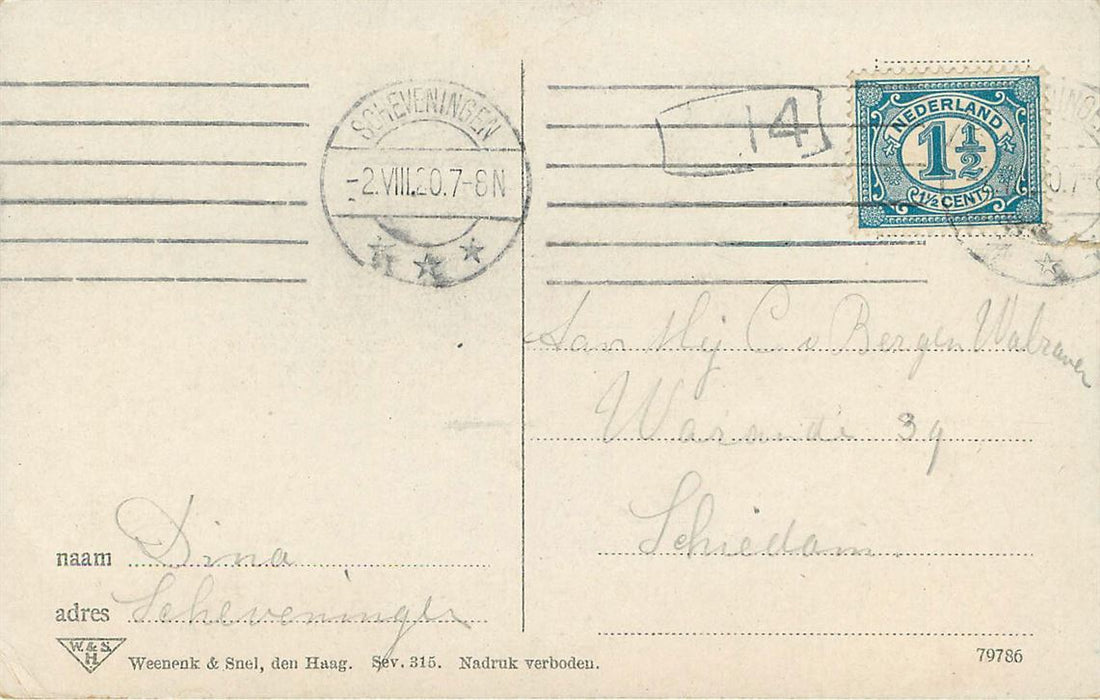 SCHEVENINGEN
-2.VIII.20.7-8N
14
NEDERLAND
1 1/2
1/2 CENT 1/2
Aan Mej C v Bergen Walraven
Warande 39
Schiedam.
naam Dina
adres Scheveningen
W. & S. H.
Weenenk & Snel, den Haag. Sev. 315. Nadruk verboden.
79786